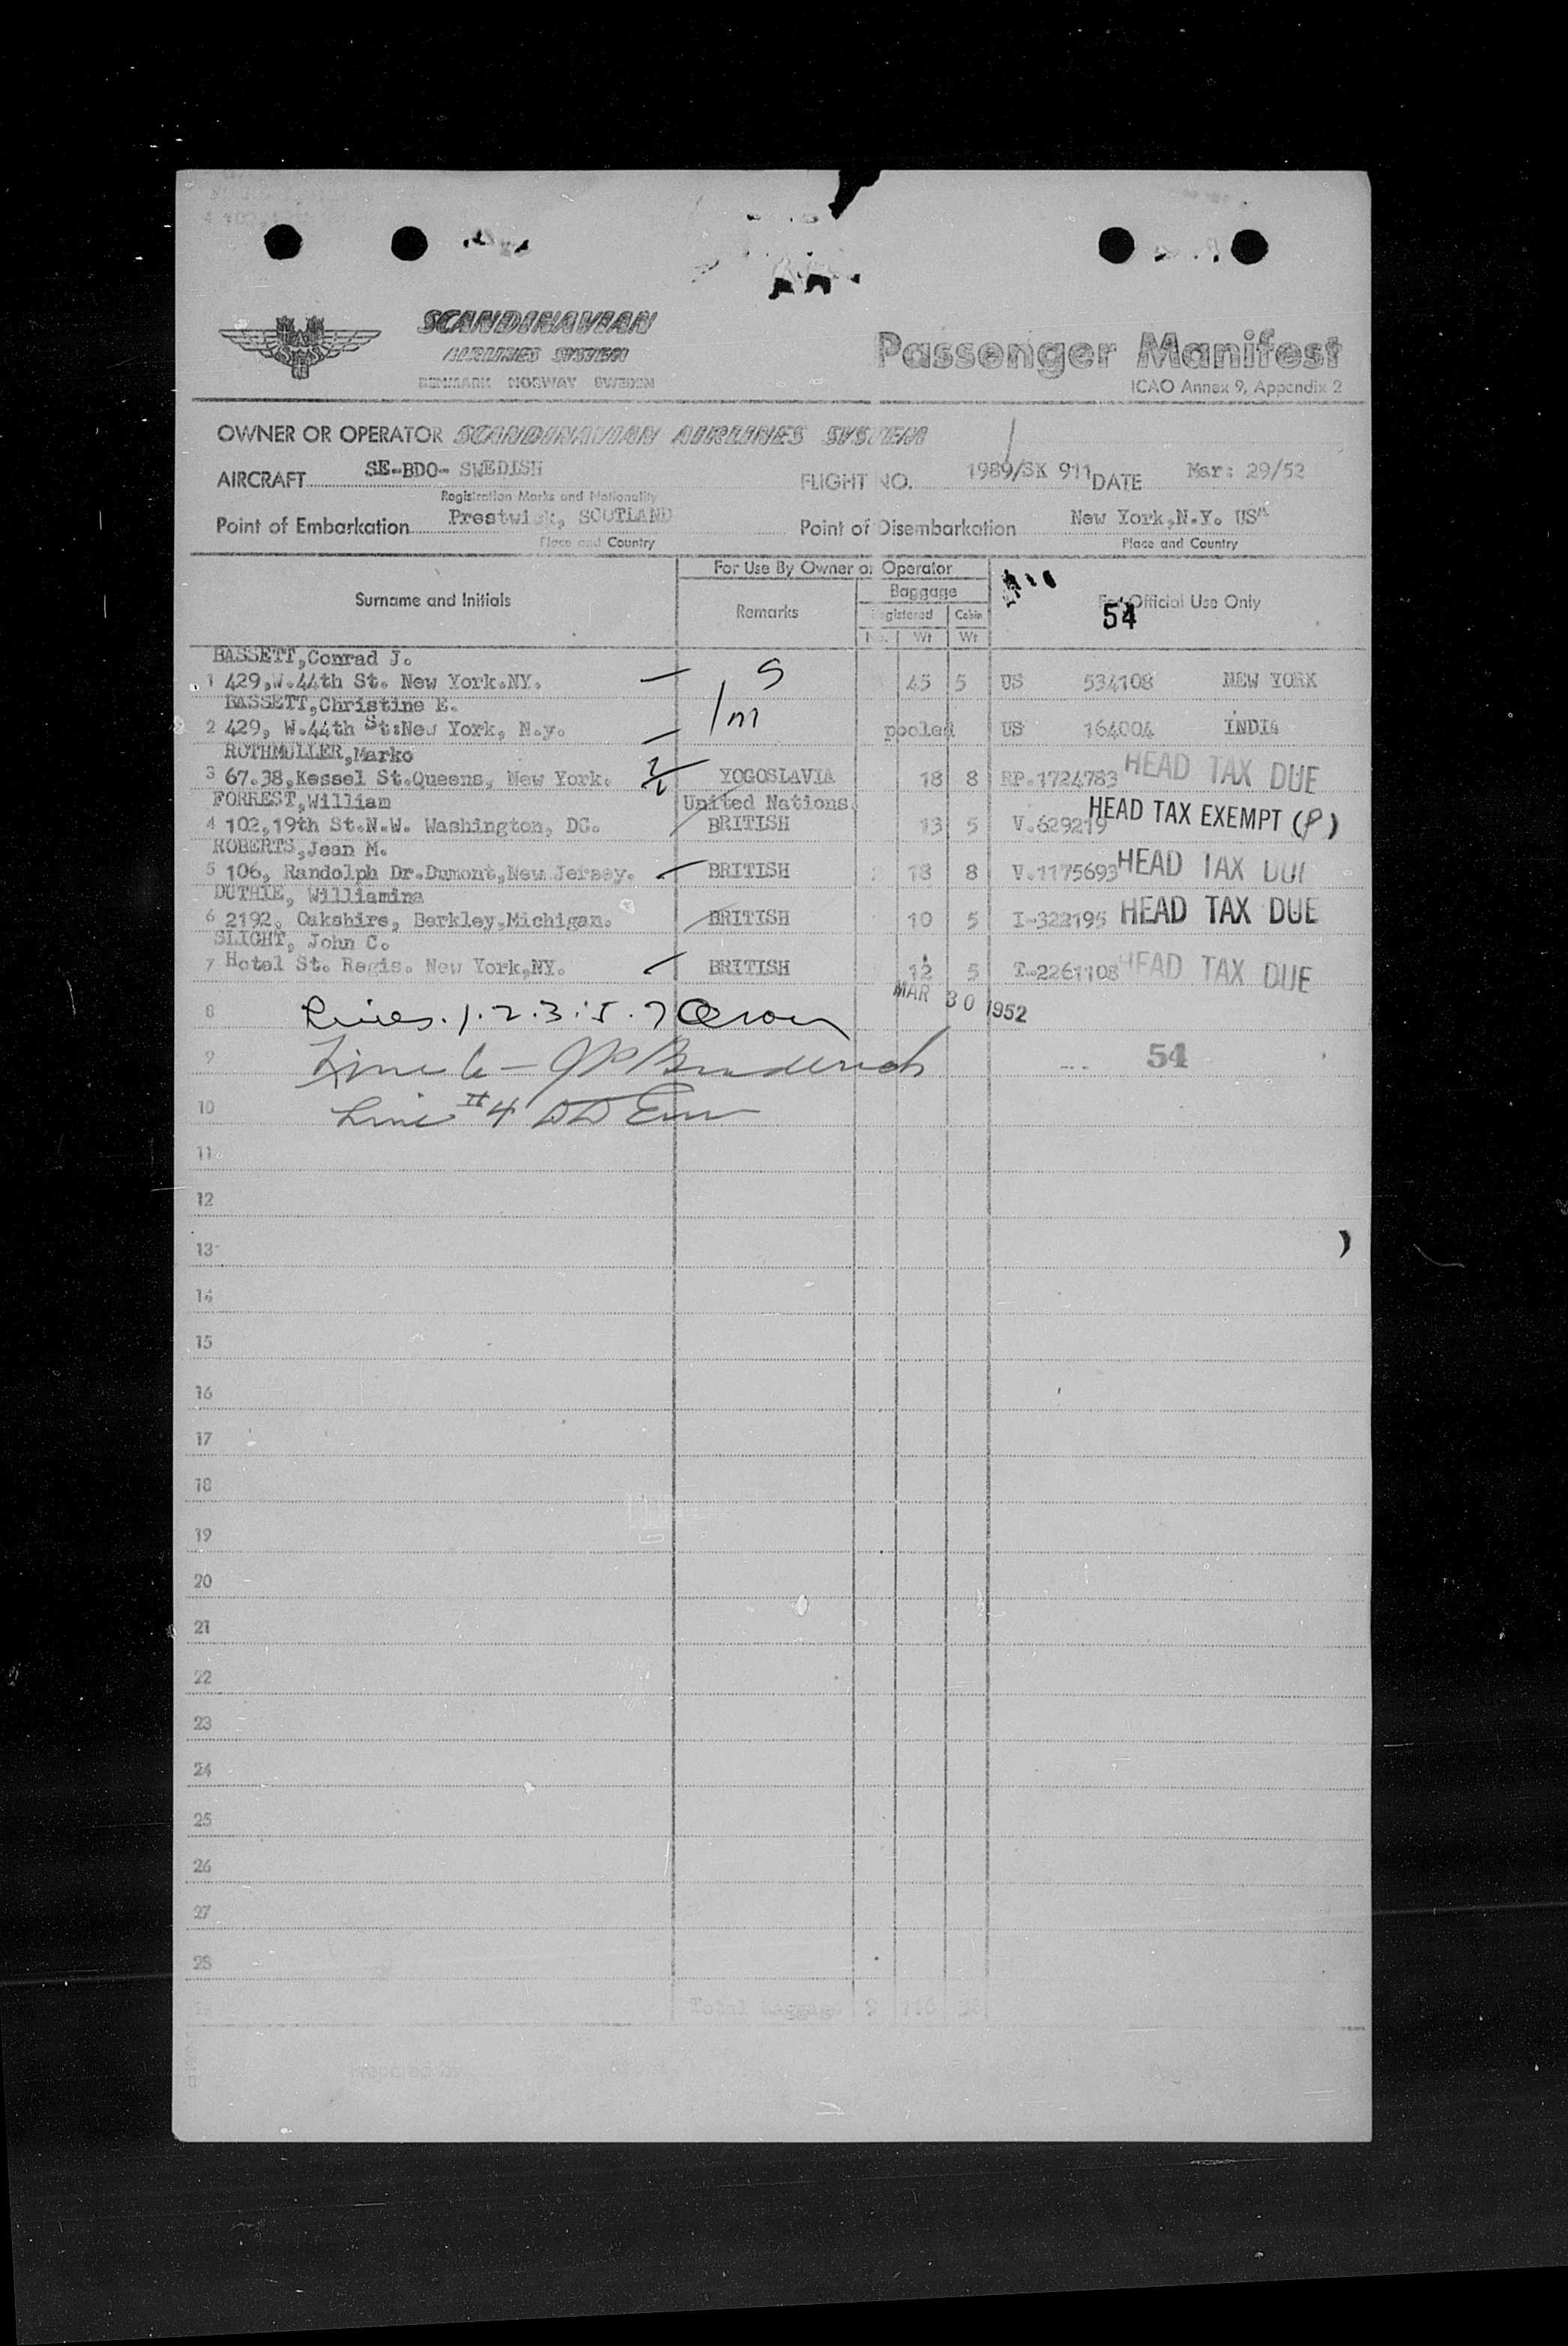 SCANDINAVIAN
AIRLINES SYSTEM
DENMARK NORWAY SWEDEN
Passenger Manifest
ICAO Annex 9, Appendix 2
OWNER OR OPERATOR SCANDINAVIAN AIRLINES SYSTEM
AIRCRAFT SE-BDO- SWEDISH FLIGHT NO. 1989/SK 911 DATE Mar: 29/52
Registration Marks and Nationality
Point of Embarkation Prestwick, SCOTLAND Point of Disembarkation New York,N.Y. USA
Place and Country Place and Country
For Use By Owner or Operator
Surname and Initials Remarks Baggage For Official Use Only
Registered Cabin 54
No. Wt Wt
BASSETT,Conrad J.
1 429,W.44th St. New York.NY. S 45 5 US 534108 NEW YORK
BASSETT,Christine E.
2 429, W.44th St:New York, N.y. 1m pooled US 164004 INDIA
ROTHMULLER,Marko
3 67.38,Kessel St.Queens, New York. YOGOSLAVIA 18 8 RP.1724783 HEAD TAX DUE
FORREST,William United Nations
4 102,19th St.N.W. Washington, DC. BRITISH 13 5 V.629219 HEAD TAX EXEMPT (P)
ROBERTS,Jean M.
5 106, Randolph Dr.Dumont,New Jersey. BRITISH 18 8 V.1175693 HEAD TAX DUE
DUTHIE, Williamina
6 2192, Oakshire, Berkley,Michigan. BRITISH 10 5 I-322195 HEAD TAX DUE
SLIGHT, John C.
7 Hotel St. Regis. New York,NY. BRITISH 12 5 I-2261108 HEAD TAX DUE
MAR 30 1952
8 Lines. 1. 2. 3. 5. 7
9 Line 6 - 54
10 Line #4
11
12
13
14
15
16
17
18
19
20
21
22
23
24
25
26
27
28
Total baggage 9 116 36